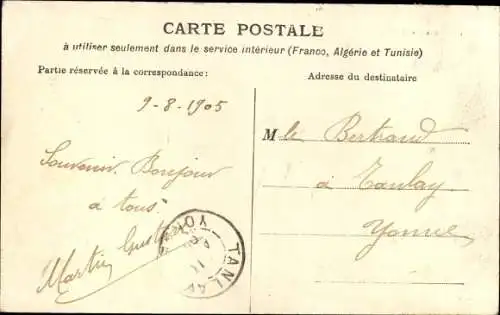 CARTE POSTALE
à utiliser seulement dans le service intérieur (France, Algérie et Tunisie)
Partie réservée à la correspondance:
Adresse du destinataire
9-8-1905
Souvenir. Bonjour
à tous.
Martin
Mlle Bertrand
à Tanlay
Yonne
TANLAY